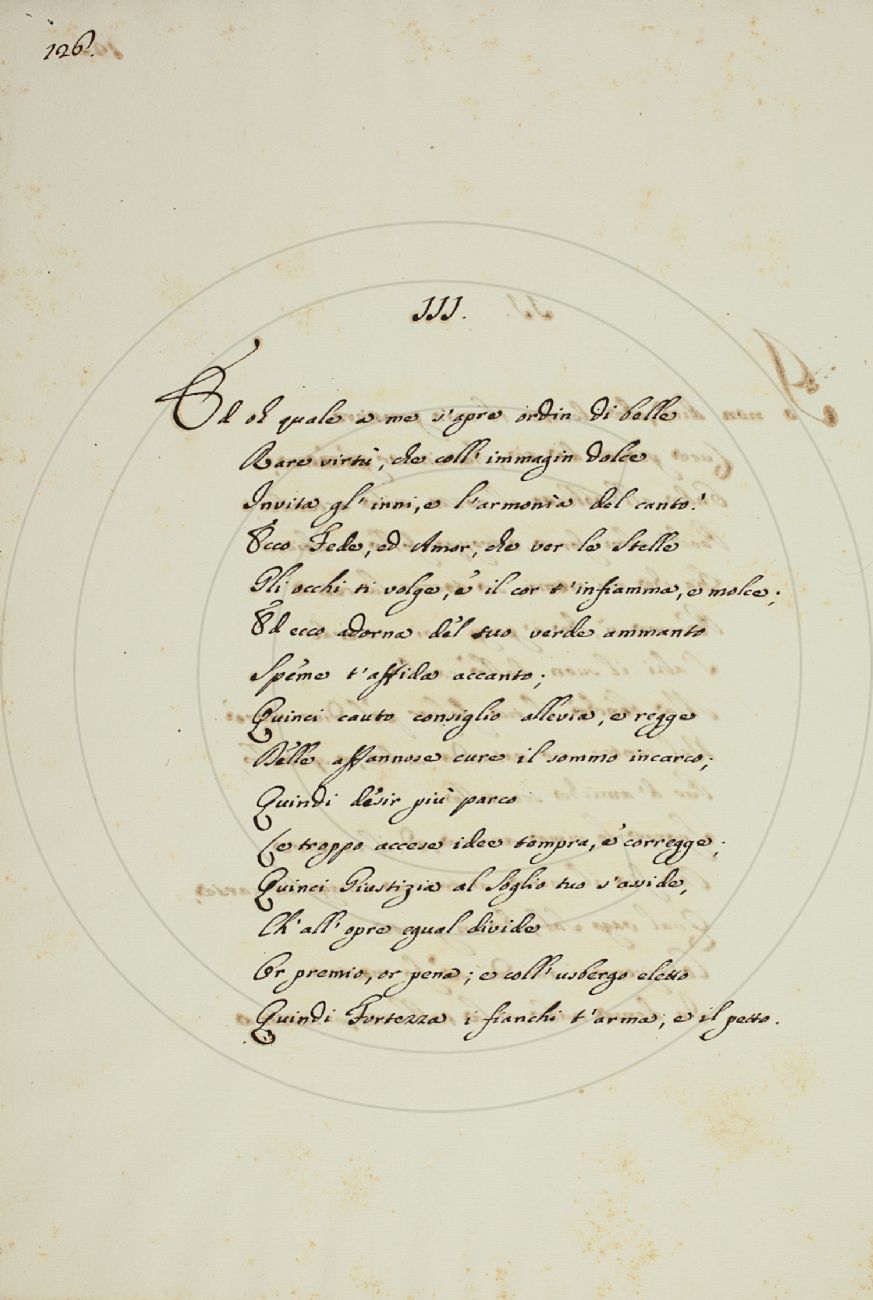 126.
III.
Ed oh quale a me s'apre ordin di belle
Rare virtù, che coll' immagin dolce
Invita gl' inni, e l'armonìa del canto!
Ecco Fede, ed Amor, che ver le Stelle
Gli occhi ti volge, e il cor t'infiamma, e molce;
Ed ecco adorna del suo verde ammanto
Speme t'affida accanto;
Quinci cauto consiglio allevia, e regge
Delle affannose cure il sommo incarco;
Quindi desir più parco
Le troppo accese idee tempra, e corregge;
Quinci Giustizia al Soglio tuo s'asside,
Ch' all' opre egual divide
Or premio, or pena; e coll' usbergo eletto
Quindi Fortezza i fianchi t'arma, e il petto.